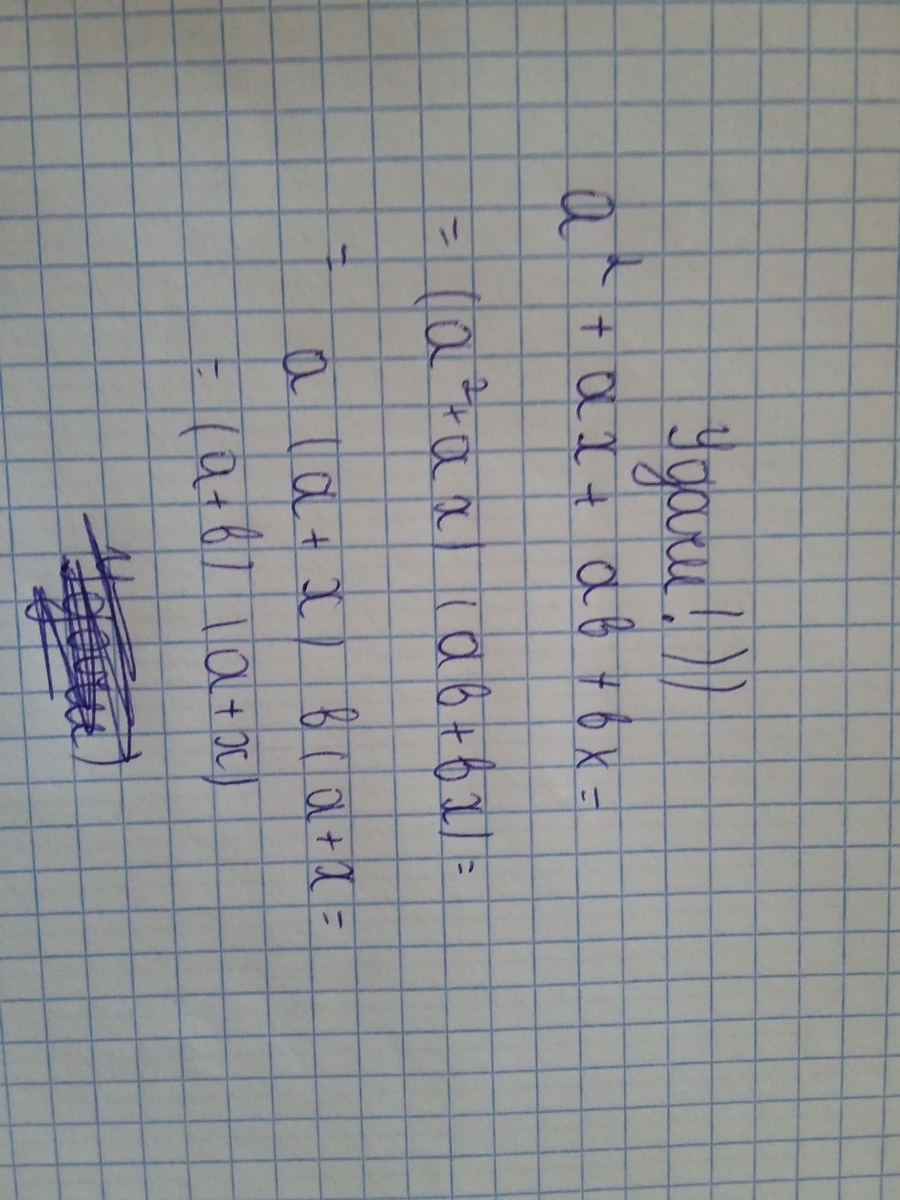 Удачи!))
a² + ax + ab + bx =
= (a² + ax) (ab + bx) =
= a (a + x) b (a + x =
= (a + b) (a + x)